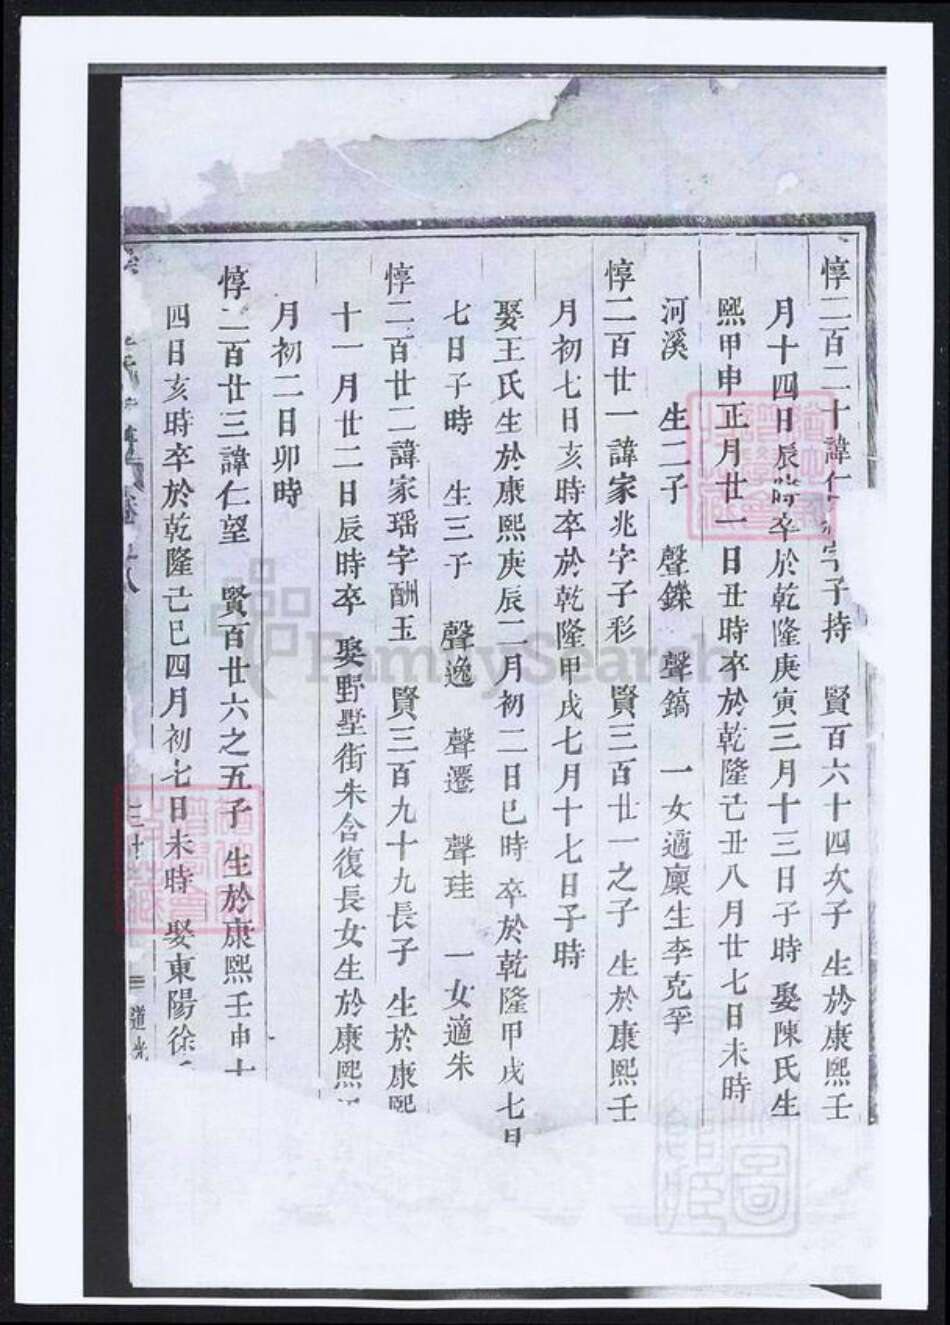 惇二百二十諱仁 字子持 賢百六十四次子 生於康熙壬
月十四日辰時卒於乾隆庚寅三月十三日子時 娶陳氏生
熙甲申正月廿一日丑時卒於乾隆己丑八月廿七日未時
河溪 生二子 聲鑠 聲鎬 一女適廩生李克孚
惇二百廿一諱家兆字子彩 賢三百廿一之子 生於康熙壬
月初七日亥時卒於乾隆甲戌七月十七日子時
娶王氏生於康熙庚辰二月初二日巳時 卒於乾隆甲戌七月
七日子時 生三子 聲逸 聲遷 聲珪 一女適朱
惇二百廿二諱家瑶字酬玉 賢三百九十九長子 生於康熙
十一月廿二日辰時卒 娶野墅街朱含復長女生於康熙
月初二日卯時
惇二百廿三諱仁望 賢百廿六之五子 生於康熙壬申十
四日亥時卒於乾隆己巳四月初七日未時 娶東陽徐
道光
FamilySearch